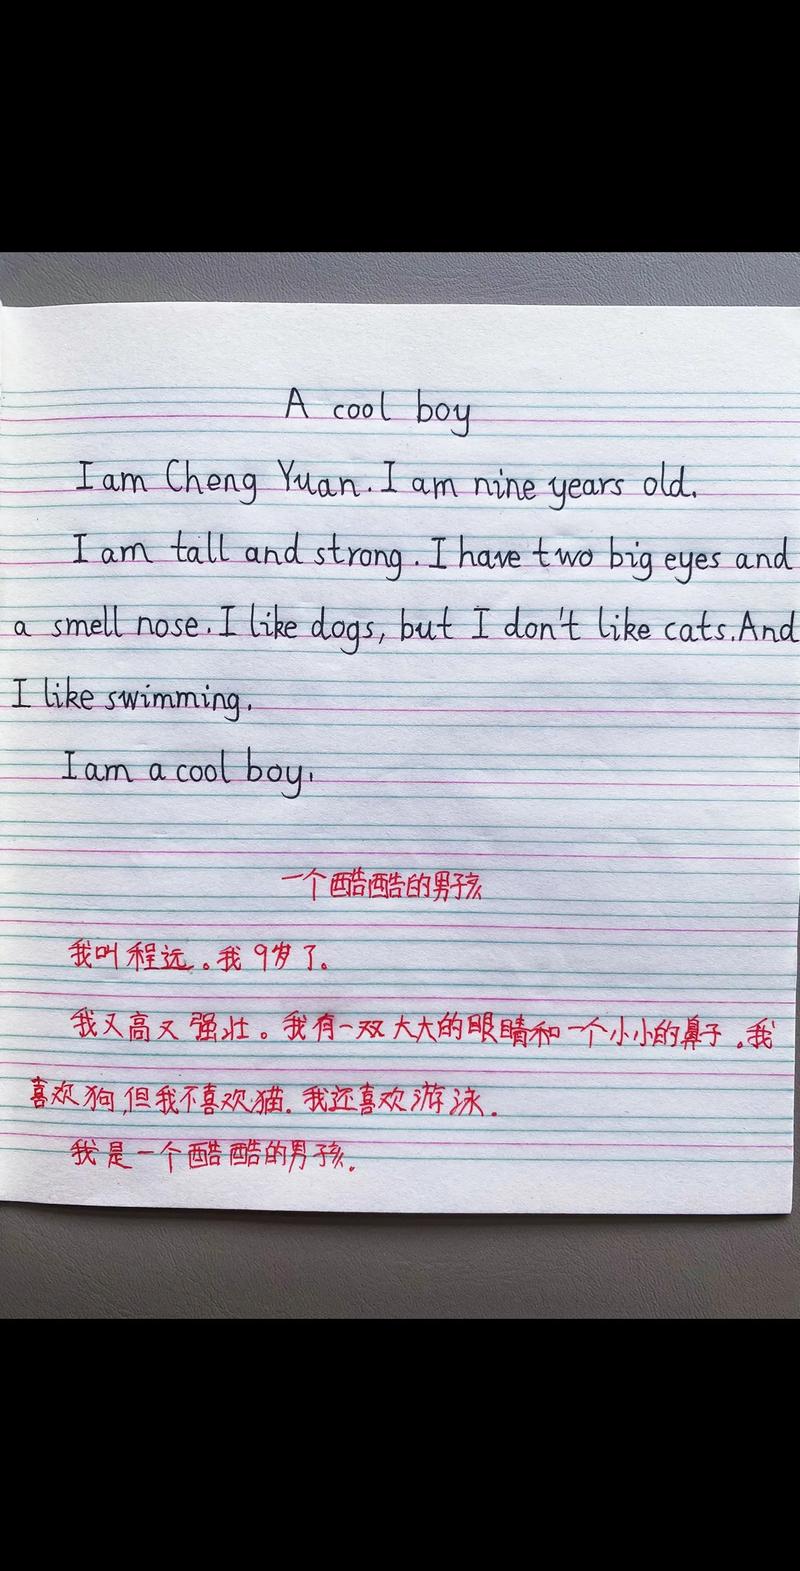 A cool boy
I am Cheng Yuan. I am nine years old.
I am tall and strong. I have two big eyes and
a smell nose. I like dogs, but I don't like cats. And
I like swimming.
I am a cool boy.
一个酷酷的男孩
我叫程远。我9岁了。
我又高又强壮。我有一双大大的眼睛和一个小小的鼻子。我
喜欢狗,但我不喜欢猫。我还喜欢游泳。
我是一个酷酷的男孩。